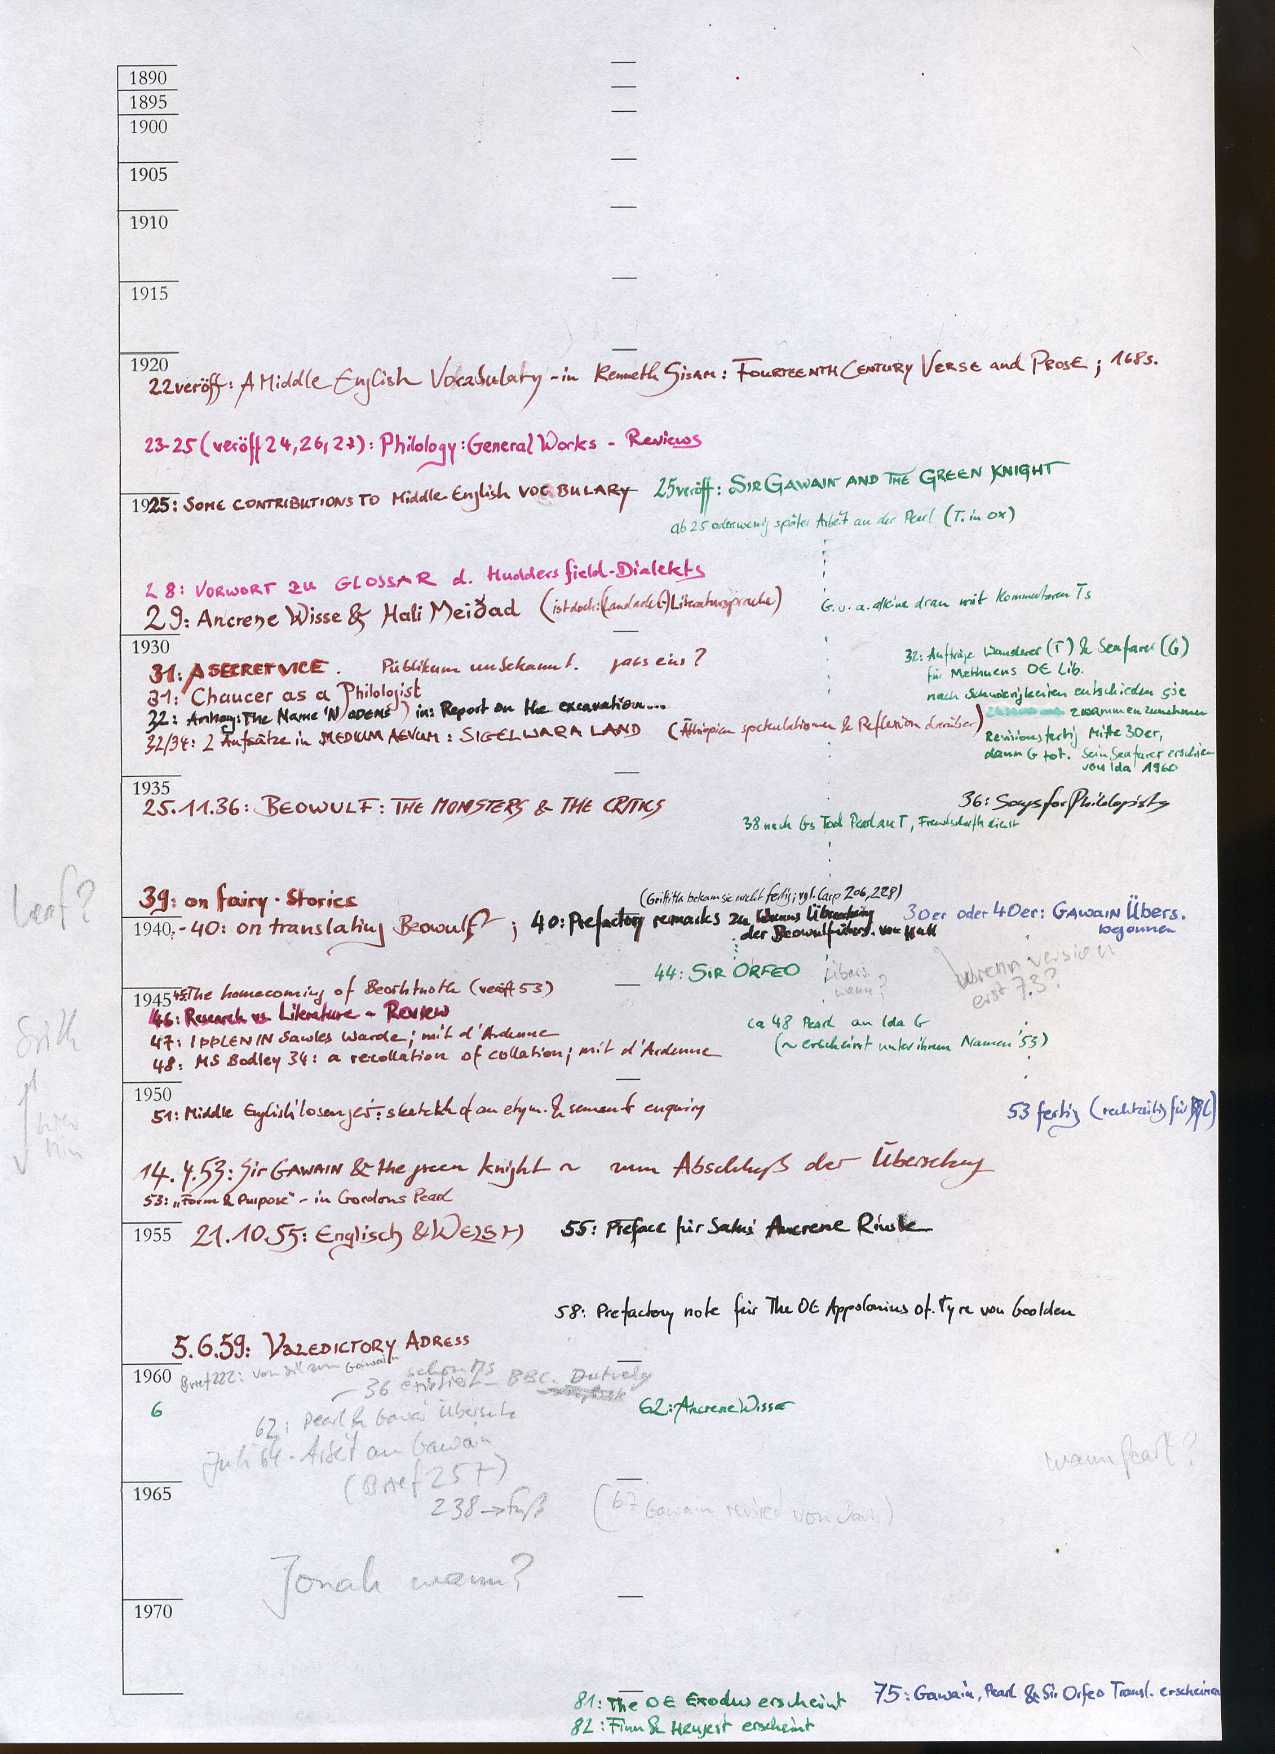 1890
1895
1900
1905
1910
1915
1920
22 veröff: A Middle English Vocabulary - in Kenneth Sisam: FOURTEENTH CENTURY VERSE and PROSE; 168s.
23-25 (veröff 24, 26, 27): Philology: General Works - Reviews
1925: SOME CONTRIBUTIONS TO Middle-English VOCABULARY 25 veröff: SIR GAWAIN AND THE GREEN KNIGHT
ab 25 oder wenig später Arbeit an der Pearl (T. in Ox)
28: VORWORT ZU GLOSSAR d. Huddersfield-Dialekts
29: Ancrene Wisse & Hali Meiðad (ist doch: Literatursprache)
G. v. a. alleine dran mit Kommentaren Ts
1930
31: A SECRET VICE. Publikum unbekannt. gabs eins?
32: Aufträge Wanderer (T) & Seafarer (G)
für Methuens OE Lib.
nach Schwierigkeiten entschieden sie
zusammenzunehmen
31: Chaucer as a Philologist
32: Anhang: The Name 'NODENS') in: Report on the excavation...
32/34: 2 Aufsätze in MEDIUM AEVUM: SIGELWARA LAND (Äthiopien spekulationen & Reflexion darüber)
Revisionsfertig Mitte 30er,
dann G tot. Sein Seafarer erschien
von Ida 1960
1935
25.11.36: BEOWULF: THE MONSTERS & THE CRITICS
36: Songs for Philologists
38 nach Gs Tod Pearl an T, Freundschaftsdienst
Leaf?
39: on fairy-Stories
(Griffiths bekam sie nicht fertig; vgl. Carp 206, 228)
1940 -40: on translating Beowulf; 40: Prefactory remarks zu Wrenns Übersetzung
der Beowulfübers. von Hall
30er oder 40er: GAWAIN Übers.
begonnen
44: SIR ORFEO
Übers
wann?
Wrenn version
erst 73?
1945 45: The homecoming of Beorhtnoth (veröff 53)
46: Research vs Literature - Review
47: IPPLEN IN Sawles Warde; mit d'Ardenne
48: MS Bodley 34: a recollation of collation; mit d'Ardenne
ca 48 Pearl an Ida G
(~ erscheint unter ihrem Namen '53)
Smith
hier
hin
1950
51: Middle English 'losenger': sketch of an etym. & semant enquiry
53 fertig (rechtzeitig für
14.4.53: Sir GAWAIN & the green knight ~ zum Abschluß der Übersetzung
53: "Form & Purpose" - in Gordons Pearl
1955
21.10.55: Englisch & WELSH 55: Preface für Salus' Ancrene Riwle
58: Prefactory note für The OE Appolonius of Tyre von Goolden
5.6.59: VALEDICTORY ADRESS
1960
Brief 222: von Gawain
schon Ms
36 existiert - BBC.
6
62: Ancrene Wisse
62: Pearl & Gawai Übersetz
Juli 64 - Arbeit an Gawain
(Brief 257)
wann Pearl?
1965
238 → Fuß
(67 Gawain revised von
Jonah wann?
1970
81: The OE Exodus erscheint
75: Gawain, Pearl & Sir Orfeo Transl. erscheinen
82: Finn & Hengest erscheint